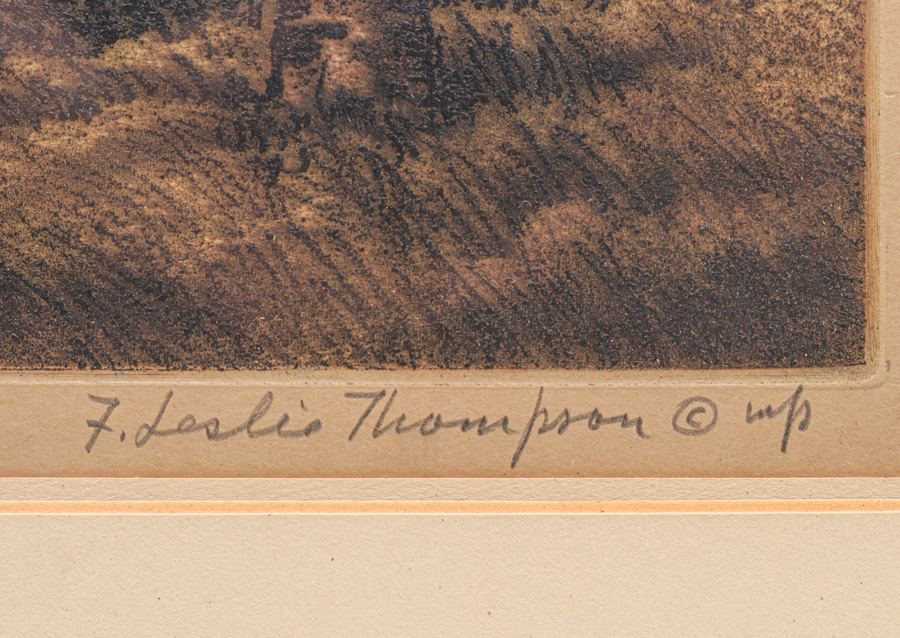 F. Leslie Thompson © imp